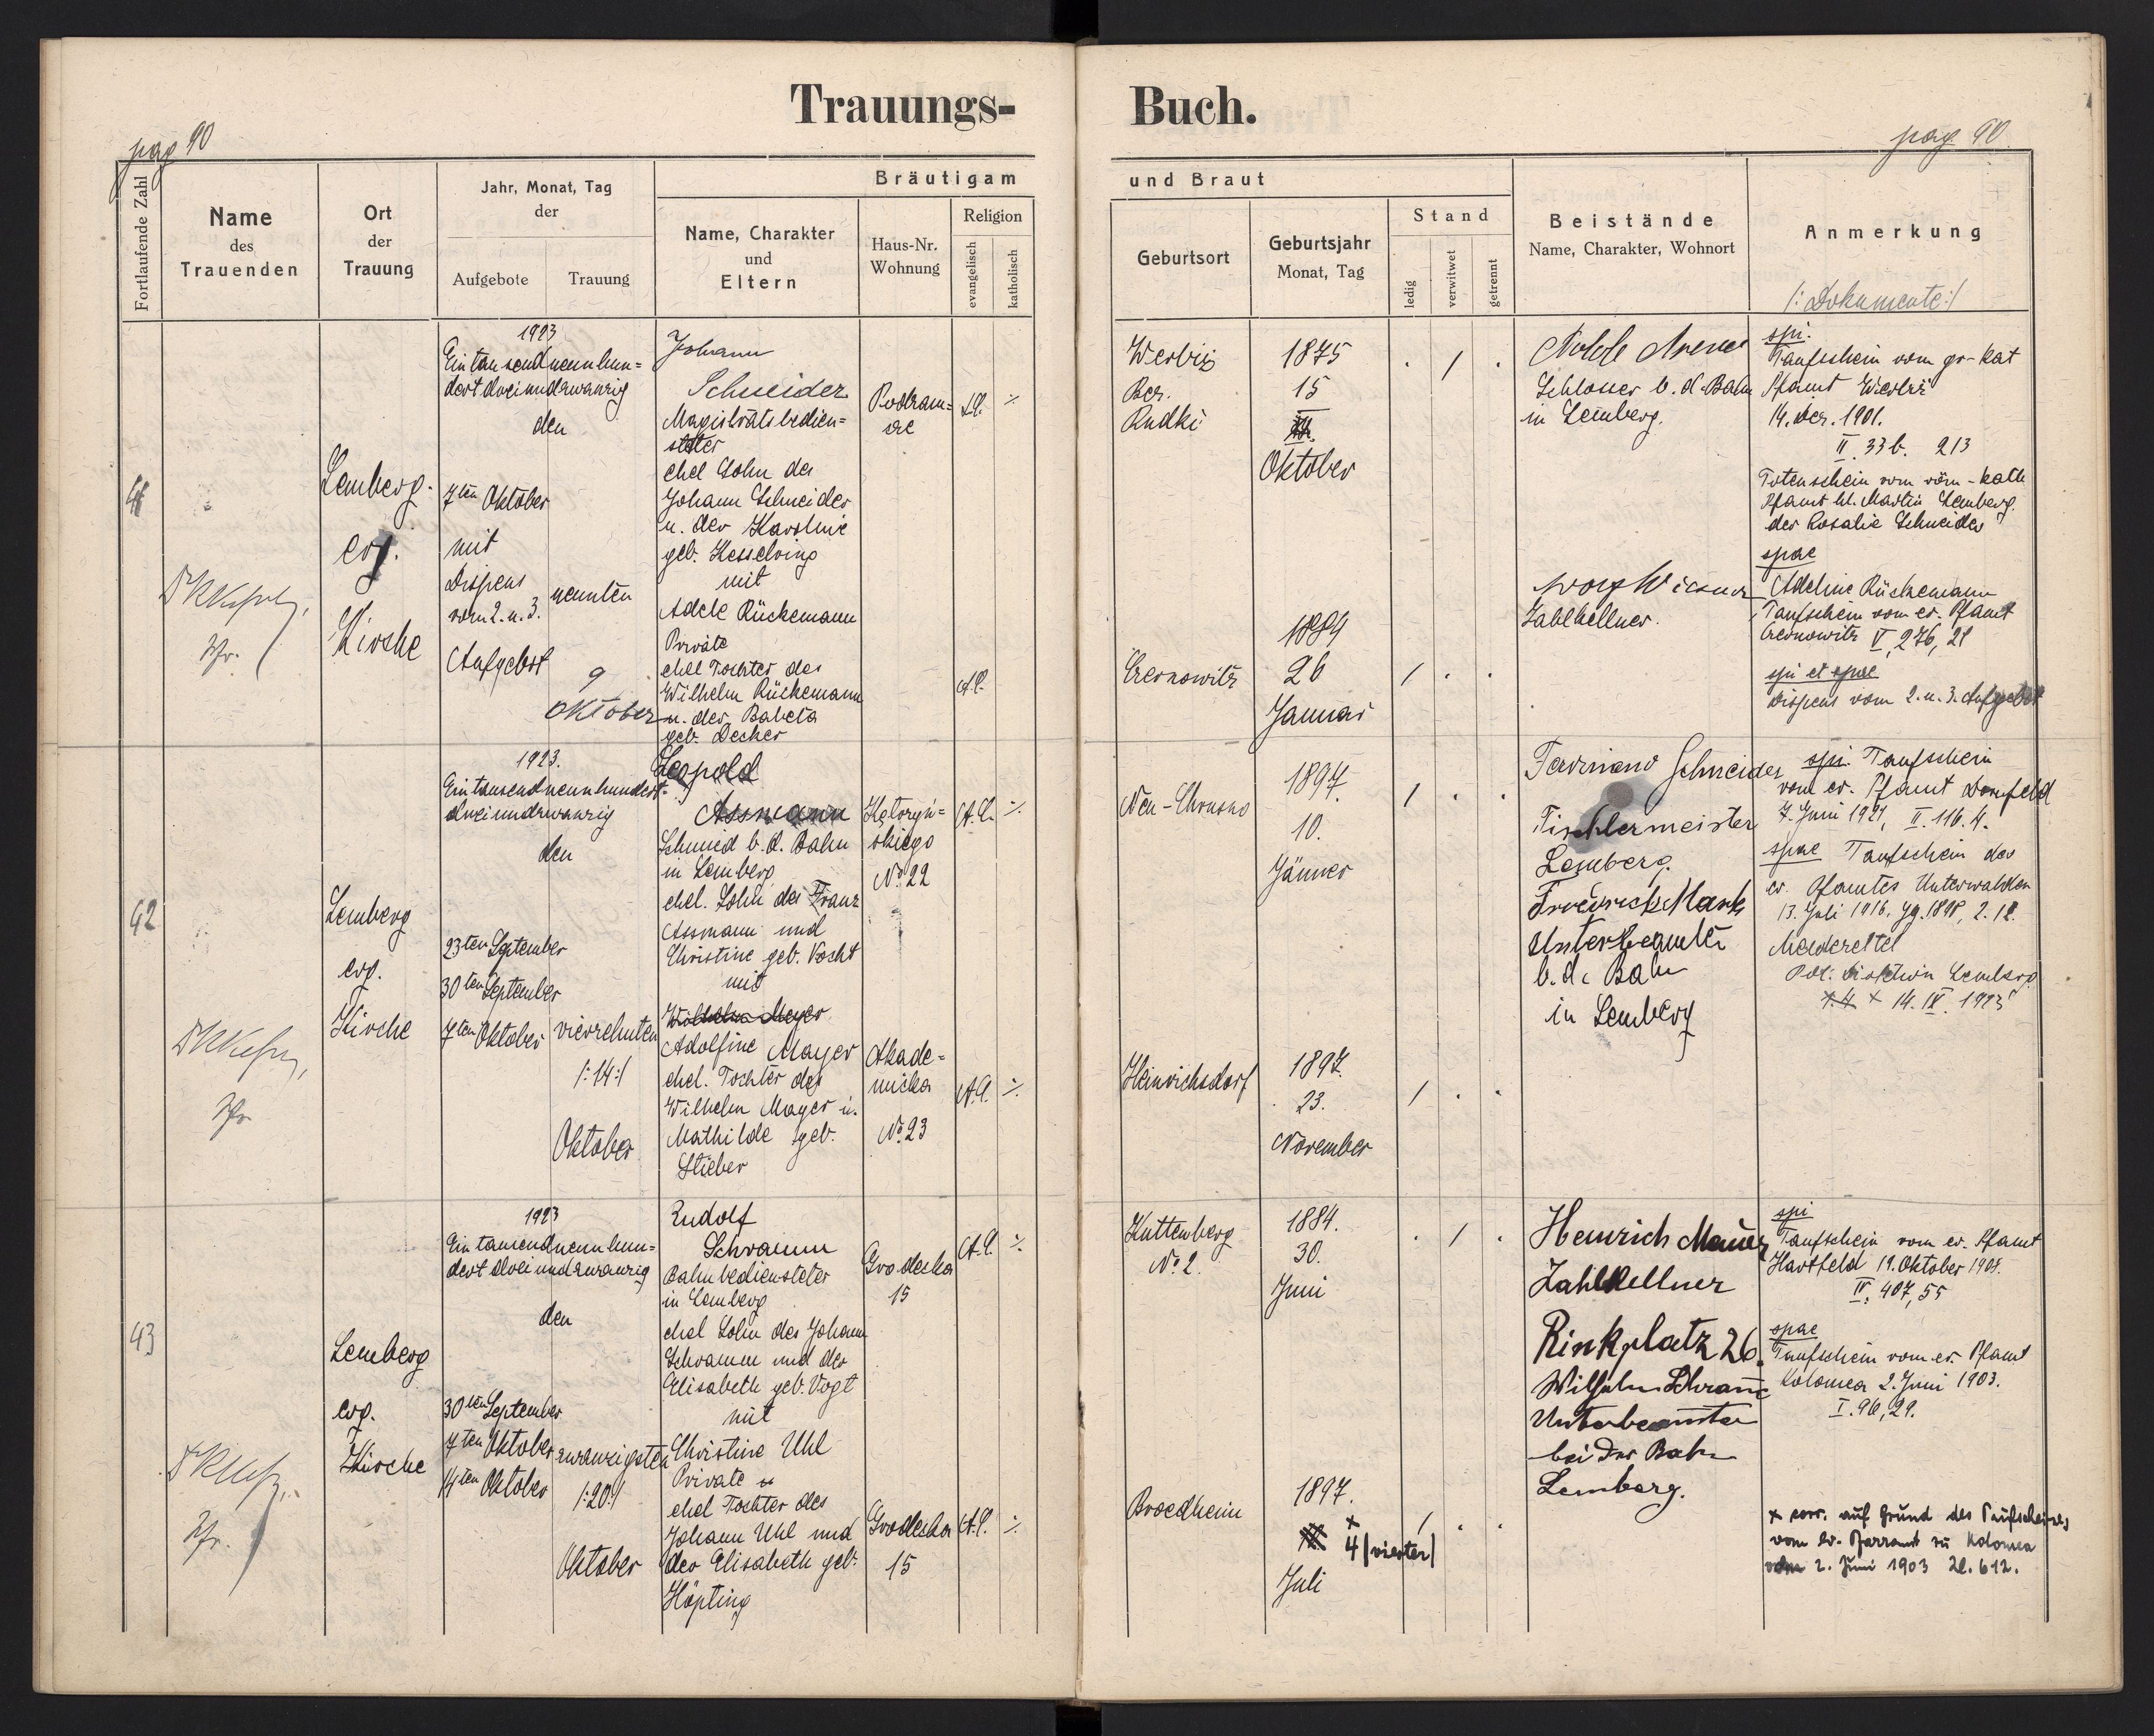 Trauungs-
Buch.
pag 90
pag 90
Fortlaufende Zahl
Name
des
Trauenden
Ort
der
Trauung
Jahr, Monat, Tag
der
Aufgebote
Trauung
Bräutigam
Name, Charakter
und
Eltern
Haus-Nr.
Wohnung
Religion
evangelisch
katholisch
und Braut
Geburtsort
Geburtsjahr
Monat, Tag
Stand
ledig
verwitwet
getrennt
Beistände
Name, Charakter, Wohnort
Anmerkung
/: Dokumente :/
41
Lemberg.
ev.
Kirche
1923
Ein tausend neunhun=
dert dreiundzwanzig
den
7ten Oktober
mit
Dispens
vom 2. u. 3.
Aufgebot
neunten
9
Oktober
Johann
Schneider
Magistratsbedien=
steter
ehel Sohn des
Johann Schneider
u. der Karoline
geb. Kesselring
mit
Adele Rückemann
Private
ehel Tochter des
Wilhelm Rückemann
u. der Babeta
geb. Decker
Podzam=
cze
A.C.
A.C.
Werbiż
Bez.
Rudki
1875
15
Oktober
Czernowitz
1884
26
Januar
Schlosser b. d. Bahn
in Lemberg.
Zahlkellner.
spi.
Taufschein vom gr-kat
Pfamt Werbiż
14. Dez. 1901.
II. 33 b. 213
Totenschein vom röm-kath
Pfamt hl. Martin Lemberg.
der Rosalie Schneider
spae
Adeline Rückemann
Taufschein vom ev. Pfamt
Czernowitz V, 276, 21
spi et spae
Dispens vom 2. u. 3. Aufgebot
42
Lemberg
evg.
Kirche
1923.
Ein tausend neunhundert-
dreiundzwanzig
den
23ten September
30ten September
7ten Oktober
vierzehnten
/:14:/
Oktober
Leopold
Assmann
Schmied b. d. Bahn
in Lemberg
ehel. Sohn des Franz
Assmann und
Christine geb. Koscht
mit
Wilhelm Meyer
Adolfine Mayer
ehel. Tochter des
Wilhelm Mayer u.
Mathilde geb.
Stieber
Kętrzyń=
skiego
No. 22
Akade=
micka
No. 23
A.C. ٪
A.C. ٪
Neu-Chrusno
1897.
10.
Jänner
Heinrichsdorf
1897.
23.
November
Ferdinand Schneider
Tischlermeister
Lemberg.
Friedrich Mank
Unterbeamter
b. d. Bahn
in Lemberg
spi. Taufschein
vom ev. Pfamt Dornfeld
7. Juni 1921, II. 116. 4.
spae Taufschein des
ev. Pfamtes Unterwalden
13. Juli 1916. Jg. 1898, 2. 12.
Meldezettel
Pol: Direktion Lemberg
14. IX. 1923
43
Lemberg
evg.
Kirche
1923
Ein tausend neunhun=
dert dreiundzwanzig
den
30ten September
7ten Oktober
14ten Oktober
zwanzigsten
/:20:/
Oktober
Rudolf
Schramm
Bahnbediensteter
in Lemberg
ehel Sohn des Johann
Schramm und der
Elisabeth geb. Vogt
mit
Christine Uhl
Private
ehel Tochter des
Johann Uhl und
der Elisabeth geb.
Höpting
Grodecka
15
Grodecka
15
A.C. ٪
A.C. ٪
Kuttenberg
No. 2.
1884.
30.
Juni
Broedheim
1897.
x
4 (vierter)
Juli
Heinrich Mauer
Zahlkellner
Rinkplatz 26.
Wilhelm Schramm
Unterbeamter
bei der Bahn
Lemberg.
spi
Taufschein vom ev. Pfamt
Hartfeld 19. Oktober 1901.
IV. 407, 55
spae
Taufschein vom ev. Pfamt
Kolomea 2. Juni 1903.
I. 96, 29.
x corr. auf Grund des Taufscheines
vom ev. Pfarramt zu Kolomea
vom 2. Juni 1903 Zl. 612.